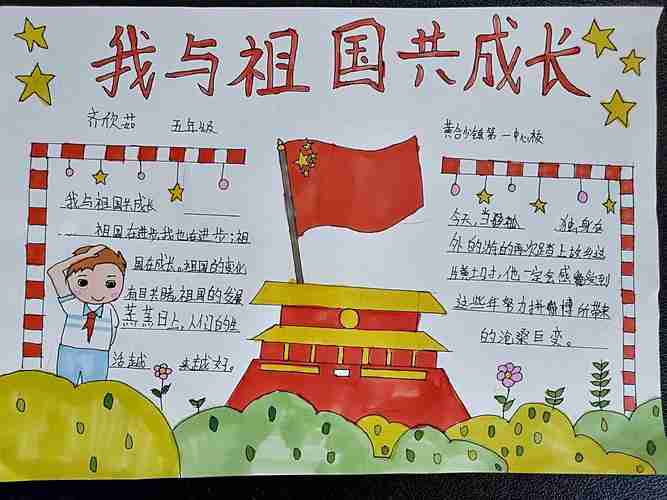 我与祖国共成长
齐欣茹 五年级
黄台沙镇第一中心校
我与祖国共成长
祖国在进步,我也在进步;祖
国在成长。祖国的变化
有目共睹,祖国的发展
蒸蒸日上,人们的生
活越来越好。
今天,当 独身在
外的游的再次踏上故乡这
片 时,他一定会感受到
这些年努力拼搏所带来
的沧桑巨变。